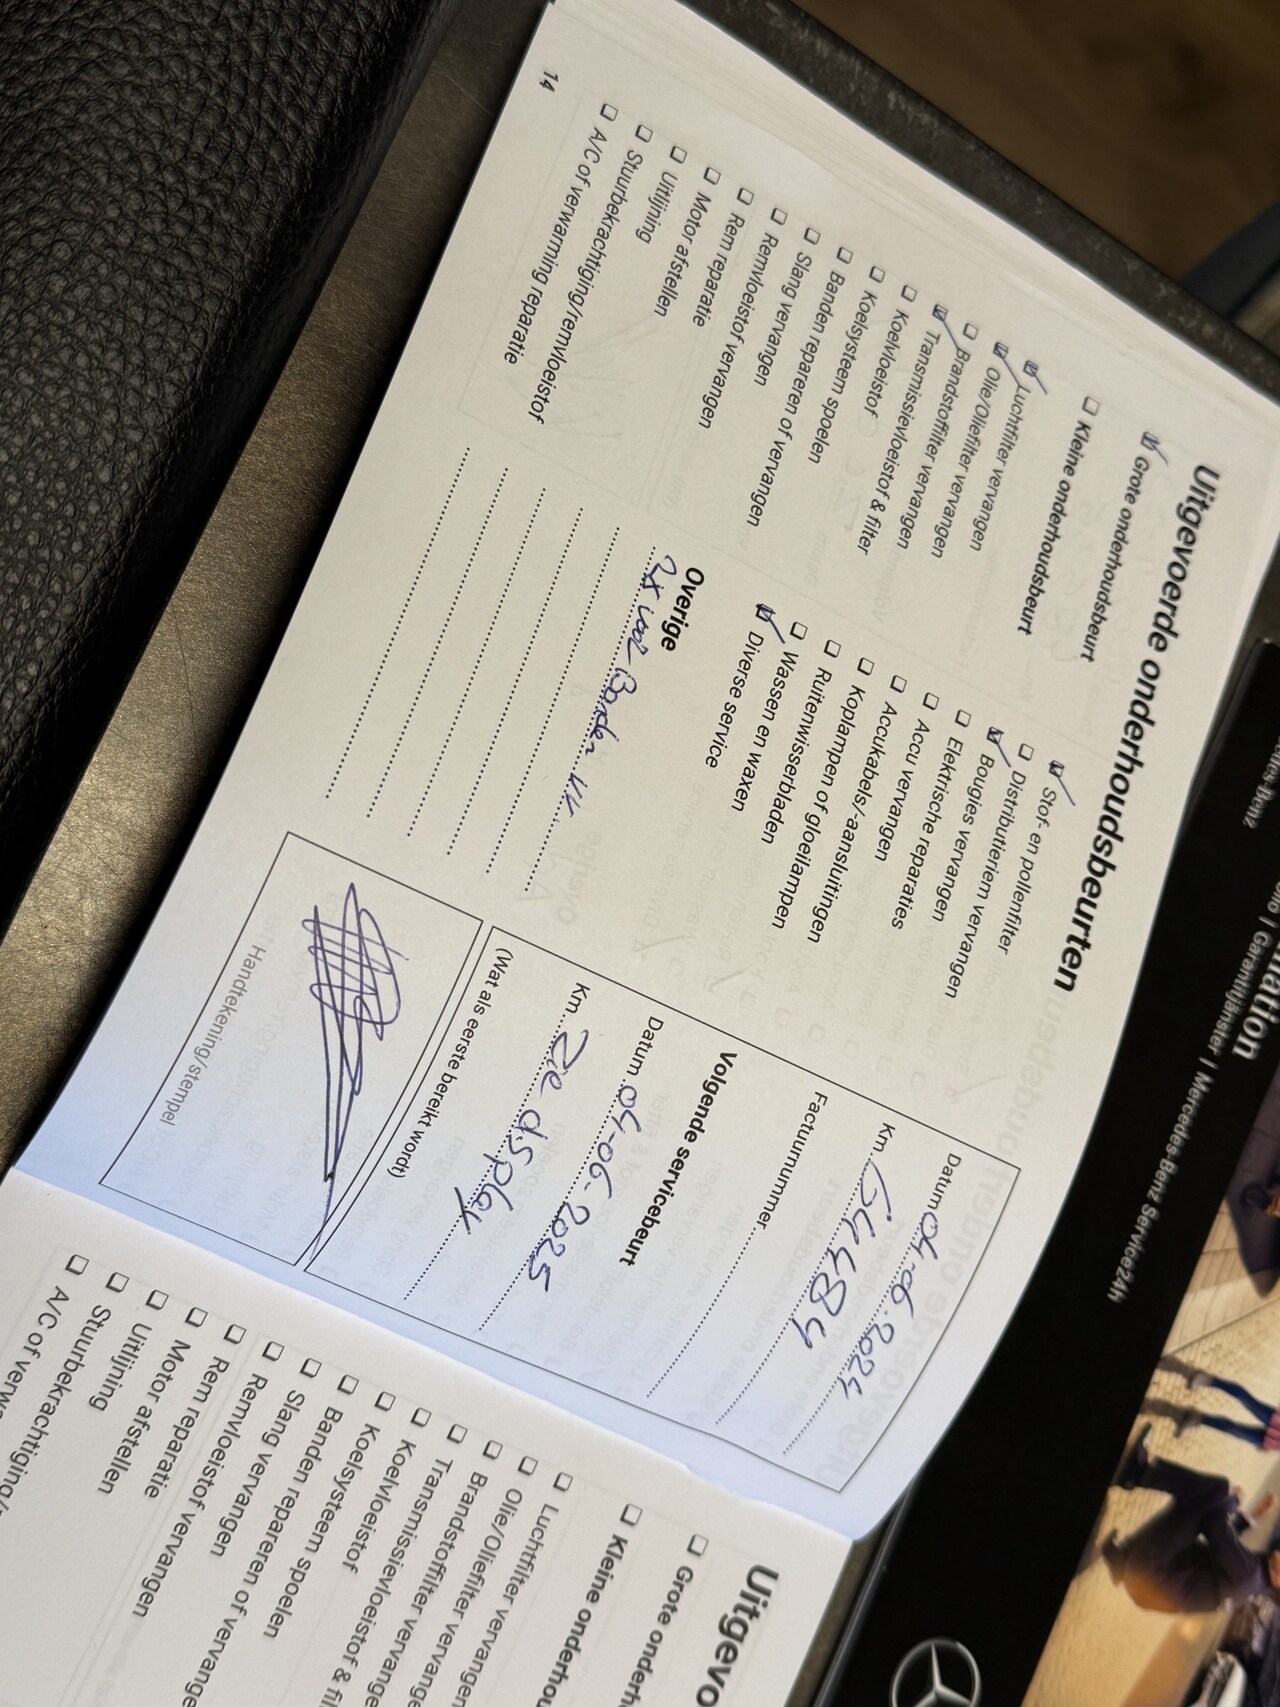 Uitgevoerde onderhoudsbeurten
Grote onderhoudsbeurt
Kleine onderhoudsbeurt
Luchtfilter vervangen
Olie/Oliefilter vervangen
Brandstoffilter vervangen
Transmissievloeistof & filter
Koelvloeistof
Koelsysteem spoelen
Banden repareren of vervangen
Slang vervangen
Remvloeistof vervangen
Rem reparatie
Motor afstellen
Uitlijning
Stuurbekrachtiging/remvloeistof
A/C of verwarming reparatie
14
Stof- en pollenfilter
Distributieriem vervangen
Bougies vervangen
Elektrische reparaties
Accu vervangen
Accukabels/-aansluitingen
Koplampen of gloeilampen
Ruitenwisserbladen
Wassen en waxen
Diverse service
Overige
2x voor Banden VV
Datum 04-06-2024
Km. 64484
Factuurnummer
Volgende servicebeurt
Datum 04-06-2025
Km. Zie display
(Wat als eerste bereikt wordt)
Handtekening/stempel
Uitgevo
Grote onderh
Kleine onderhou
Luchtfilter vervangen
Olie/Oliefilter vervangen
Brandstoffilter vervange
Transmissievloeistof & fil
Koelvloeistof
Koelsysteem spoelen
Banden repareren of vervange
Slang vervangen
Remvloeistof vervangen
Rem reparatie
Motor afstellen
Uitlijning
Stuurbekrachtiging/
A/C of verwa
Garantitjänster | Mercedes-Benz Service24h